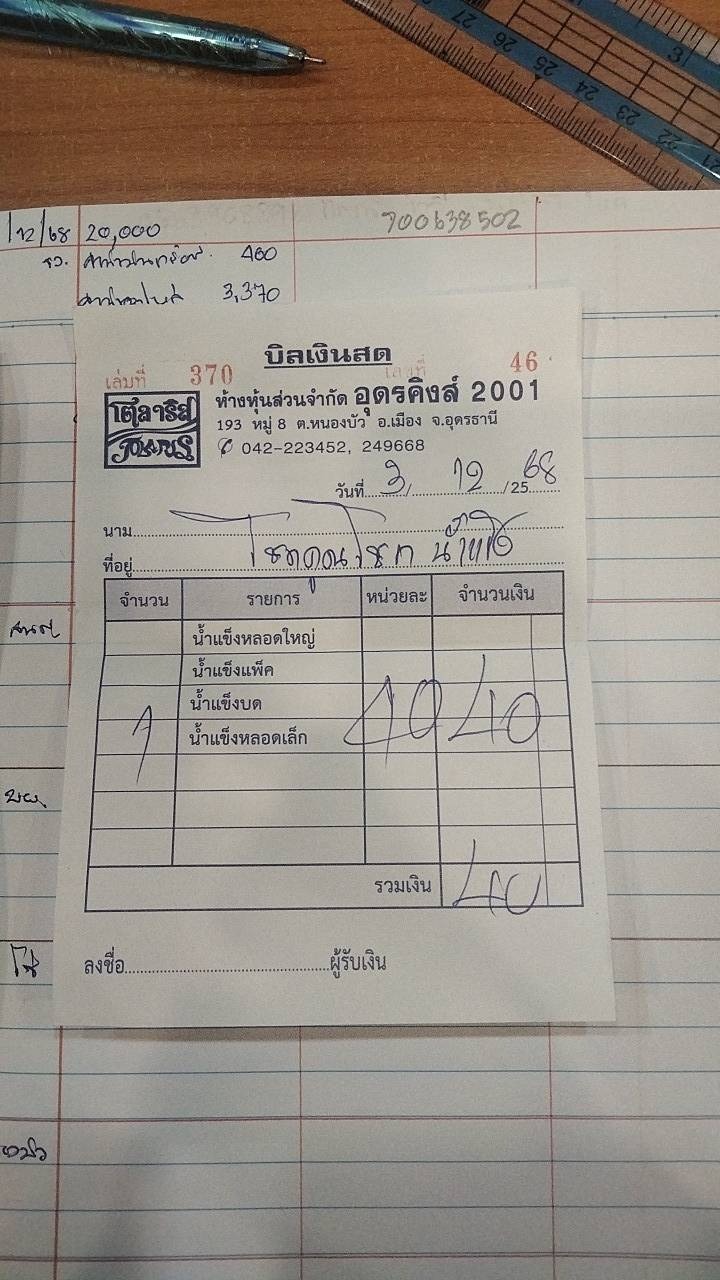 /12/68 20,000 700638502
460
3,370
บิลเงินสด
เล่มที่ 370 เลขที่ 46
โพลาริส
ห้างหุ้นส่วนจำกัด อุดรคิงส์ 2001
193 หมู่ 8 ต.หนองบัว อ.เมือง จ.อุดรธานี
042-223452, 249668
วันที่ 3 / 12 /25 68
นาม
ที่อยู่
จำนวน รายการ หน่วยละ จำนวนเงิน
น้ำแข็งหลอดใหญ่
น้ำแข็งแพ็ค
น้ำแข็งบด
1 น้ำแข็งหลอดเล็ก 40 40
รวมเงิน 40
ลงชื่อ ผู้รับเงิน
27 26 25 24 23 22 21